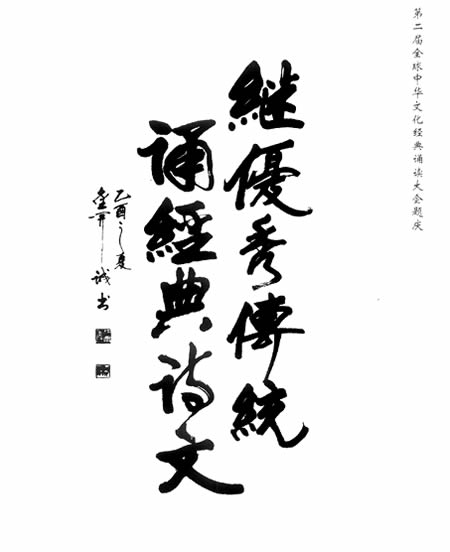 第二届全球中华文化经典诵读大会题庆
继優秀傳統
诵經典诗文
乙酉之夏
金开诚书